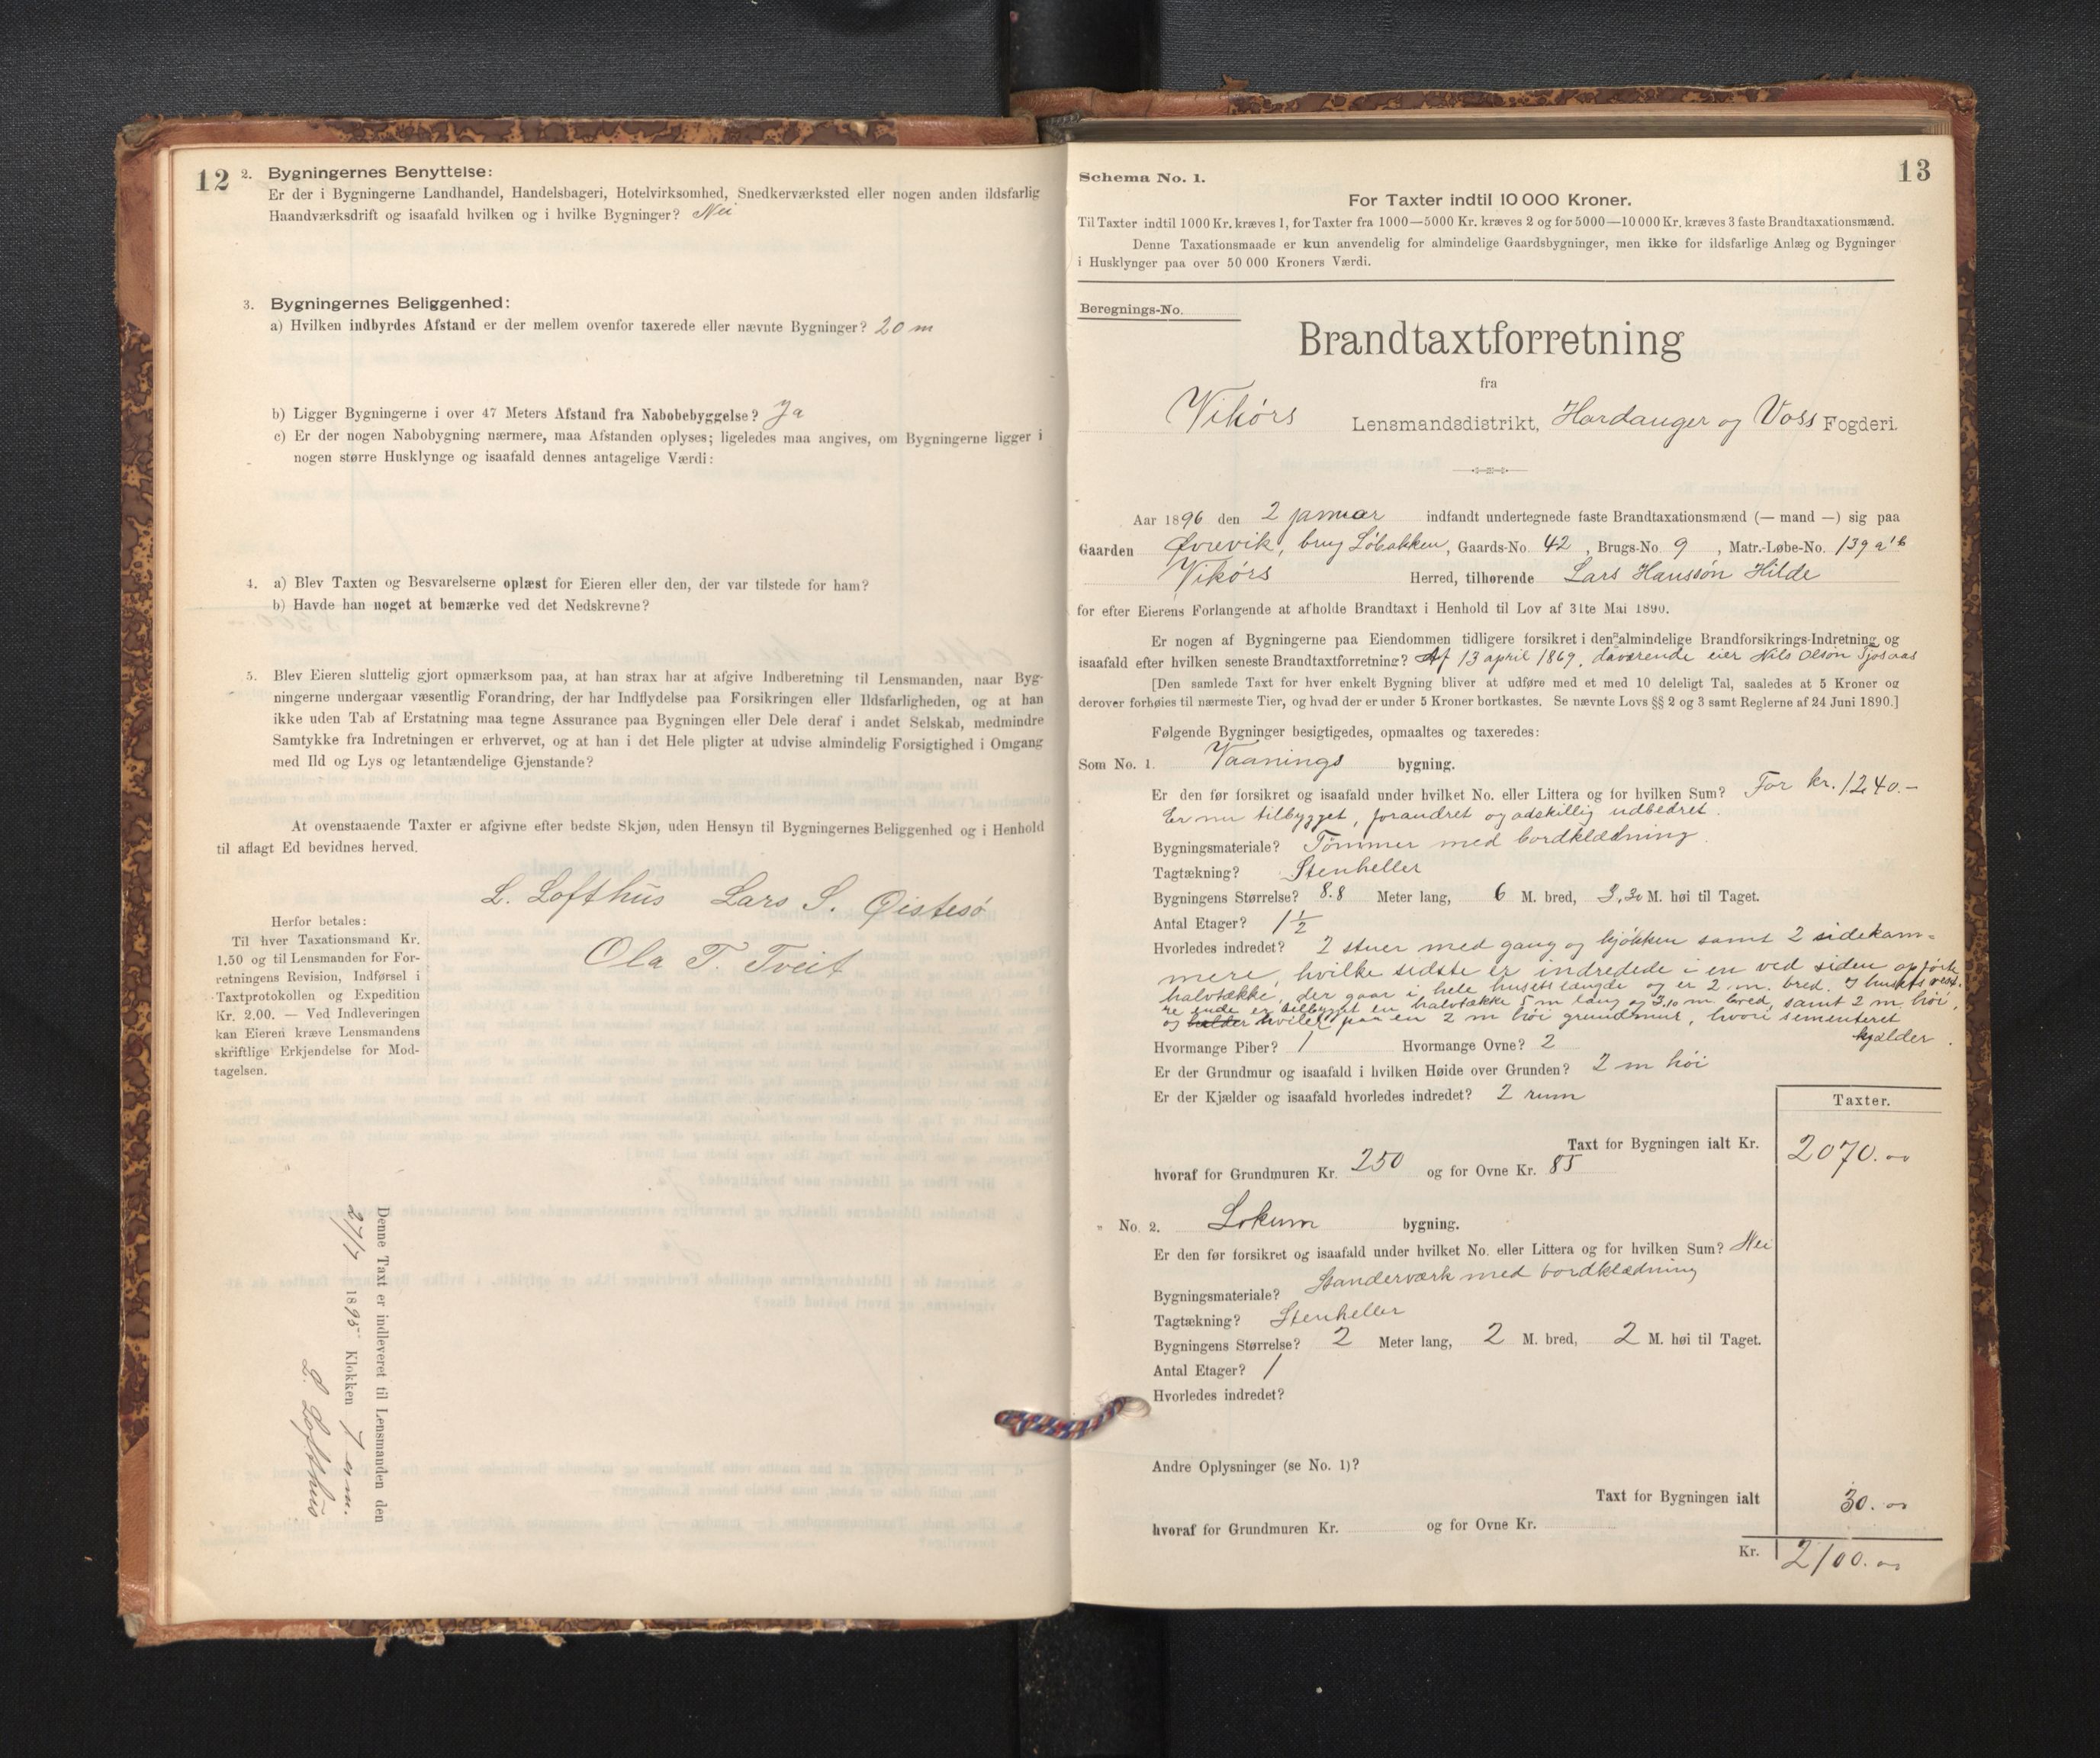 12
2. Bygningernes Benyttelse:
Er der i Bygningerne Landhandel, Handelsbageri, Hotelvirksomhed, Snedkerværksted eller nogen anden ildsfarlig
Haandværksdrift og isaafald hvilken og i hvilke Bygninger? Nei
3. Bygningernes Beliggenhed:
a) Hvilken indbyrdes Afstand er der mellem ovenfor taxerede eller nævnte Bygninger? 20 m
b) Ligger Bygningerne i over 47 Meters Afstand fra Nabobebyggelse? Ja
c) Er der nogen Nabobygning nærmere, maa Afstanden oplyses; ligeledes maa angives, om Bygningerne ligger i
nogen større Husklynge og isaafald dennes antagelige Værdi:
4. a) Blev Taxten og Besvarelserne oplæst for Eieren eller den, der var tilstede for ham?
b) Havde han noget at bemærke ved det Nedskrevne?
5. Blev Eieren sluttelig gjort opmærksom paa, at han strax har at afgive Indberetning til Lensmanden, naar Byg-
ningerne undergaar væsentlig Forandring, der har Indflydelse paa Forsikringen eller Ildsfarligheden, og at han
ikke uden Tab af Erstatning maa tegne Assurance paa Bygningen eller Dele deraf i andet Selskab, medmindre
Samtykke fra Indretningen er erhvervet, og at han i det Hele pligter at udvise almindelig Forsigtighed i Omgang
med Ild og Lys og letantændelige Gjenstande?
At ovenstaaende Taxter er afgivne efter bedste Skjøn, uden Hensyn til Bygningernes Beliggenhed og i Henhold
til aflagt Ed bevidnes herved.
L. Lofthus Lars S. Øistesö
Ola T. Tveit
Herfor betales:
Til hver Taxationsmand Kr.
1.50 og til Lensmanden for For-
retningens Revision, Indførsel i
Taxtprotokollen og Expedition
Kr. 2.00. — Ved Indleveringen
kan Eieren kræve Lensmandens
skriftlige Erkjendelse for Mod-
tagelsen.
Denne Taxt er indleveret til Lensmanden den
27/7 1895 Klokken 7 em.
L. Lofthus
13
Schema No. 1.
For Taxter indtil 10 000 Kroner.
Til Taxter indtil 1000 Kr. kræves 1, for Taxter fra 1000—5000 Kr. kræves 2 og for 5000—10 000 Kr. kræves 3 faste Brandtaxationsmænd.
Denne Taxationsmaade er kun anvendelig for almindelige Gaardsbygninger, men ikke for ildsfarlige Anlæg og Bygninger
i Husklynger paa over 50 000 Kroners Værdi.
Beregnings-No.
Brandtaxtforretning
fra
Vikörs Lensmandsdistrikt, Hardanger og Voss Fogderi.
Aar 1896 den 2 januar indfandt undertegnede faste Brandtaxationsmænd (— mand —) sig paa
Gaarden Øvrevik, brug Löbakken, Gaards-No. 42, Brugs-No. 9, Matr.-Løbe-No. 139 a
Vikörs Herred, tilhørende Lars Hanssön Hilde
for efter Eierens Forlangende at afholde Brandtaxt i Henhold til Lov af 31te Mai 1890.
Er nogen af Bygningerne paa Eiendommen tidligere forsikret i den almindelige Brandforsikrings-Indretning og
isaafald efter hvilken seneste Brandtaxtforretning? Af 13 april 1869, daværende eier Nils Olsön Tjosaas
[Den samlede Taxt for hver enkelt Bygning bliver at udføre med et med 10 deleligt Tal, saaledes at 5 Kroner og
derover forhøies til nærmeste Tier, og hvad der er under 5 Kroner bortkastes. Se nævnte Lovs §§ 2 og 3 samt Reglerne af 24 Juni 1890.]
Følgende Bygninger besigtigedes, opmaaltes og taxeredes:
Som No. 1. Vaanings bygning.
Er den før forsikret og isaafald under hvilket No. eller Littera og for hvilken Sum? For kr. 1240.-
Er nu tilbygget, forandret og adskillig udbedret.
Bygningsmateriale? Tömmer med bordklædning.
Tagtækning? Stenheller
Bygningens Størrelse? 8.8 Meter lang, 6 M. bred, 3,30 M. høi til Taget.
Antal Etager? 1½
Hvorledes indredet? 2 stuer med gang og kjökken samt 2 sidekam=
mere, hvilke sidste er indredede i en ved siden opförte
halvtække, der gaar i hele husets længde og er 2 m. bred. I husets vest-
re ende er tilbygget en halvtække 5 m lang og 3,10 m. bred, samt 2 m. höi,
og hviler paa en 2 m höi grundmur, hvori sementeret
kjælder.
Hvormange Piber? 1 Hvormange Ovne? 2
Er der Grundmur og isaafald i hvilken Høide over Grunden? 2 m höi
Er der Kjælder og isaafald hvorledes indredet? 2 rum
Taxter.
Taxt for Bygningen ialt Kr. 2070.00
hvoraf for Grundmuren Kr. 250 og for Ovne Kr. 85
" No. 2. Lokum bygning.
Er den før forsikret og isaafald under hvilket No. eller Littera og for hvilken Sum? Nei
Bygningsmateriale? Standerværk med bordklædning
Tagtækning? Stenheller
Bygningens Størrelse? 2 Meter lang, 2 M. bred, 2 M. høi til Taget.
Antal Etager? 1
Hvorledes indredet?
Andre Oplysninger (se No. 1)?
Taxt for Bygningen ialt 30.00
hvoraf for Grundmuren Kr. og for Ovne Kr.
Kr. 2100.00